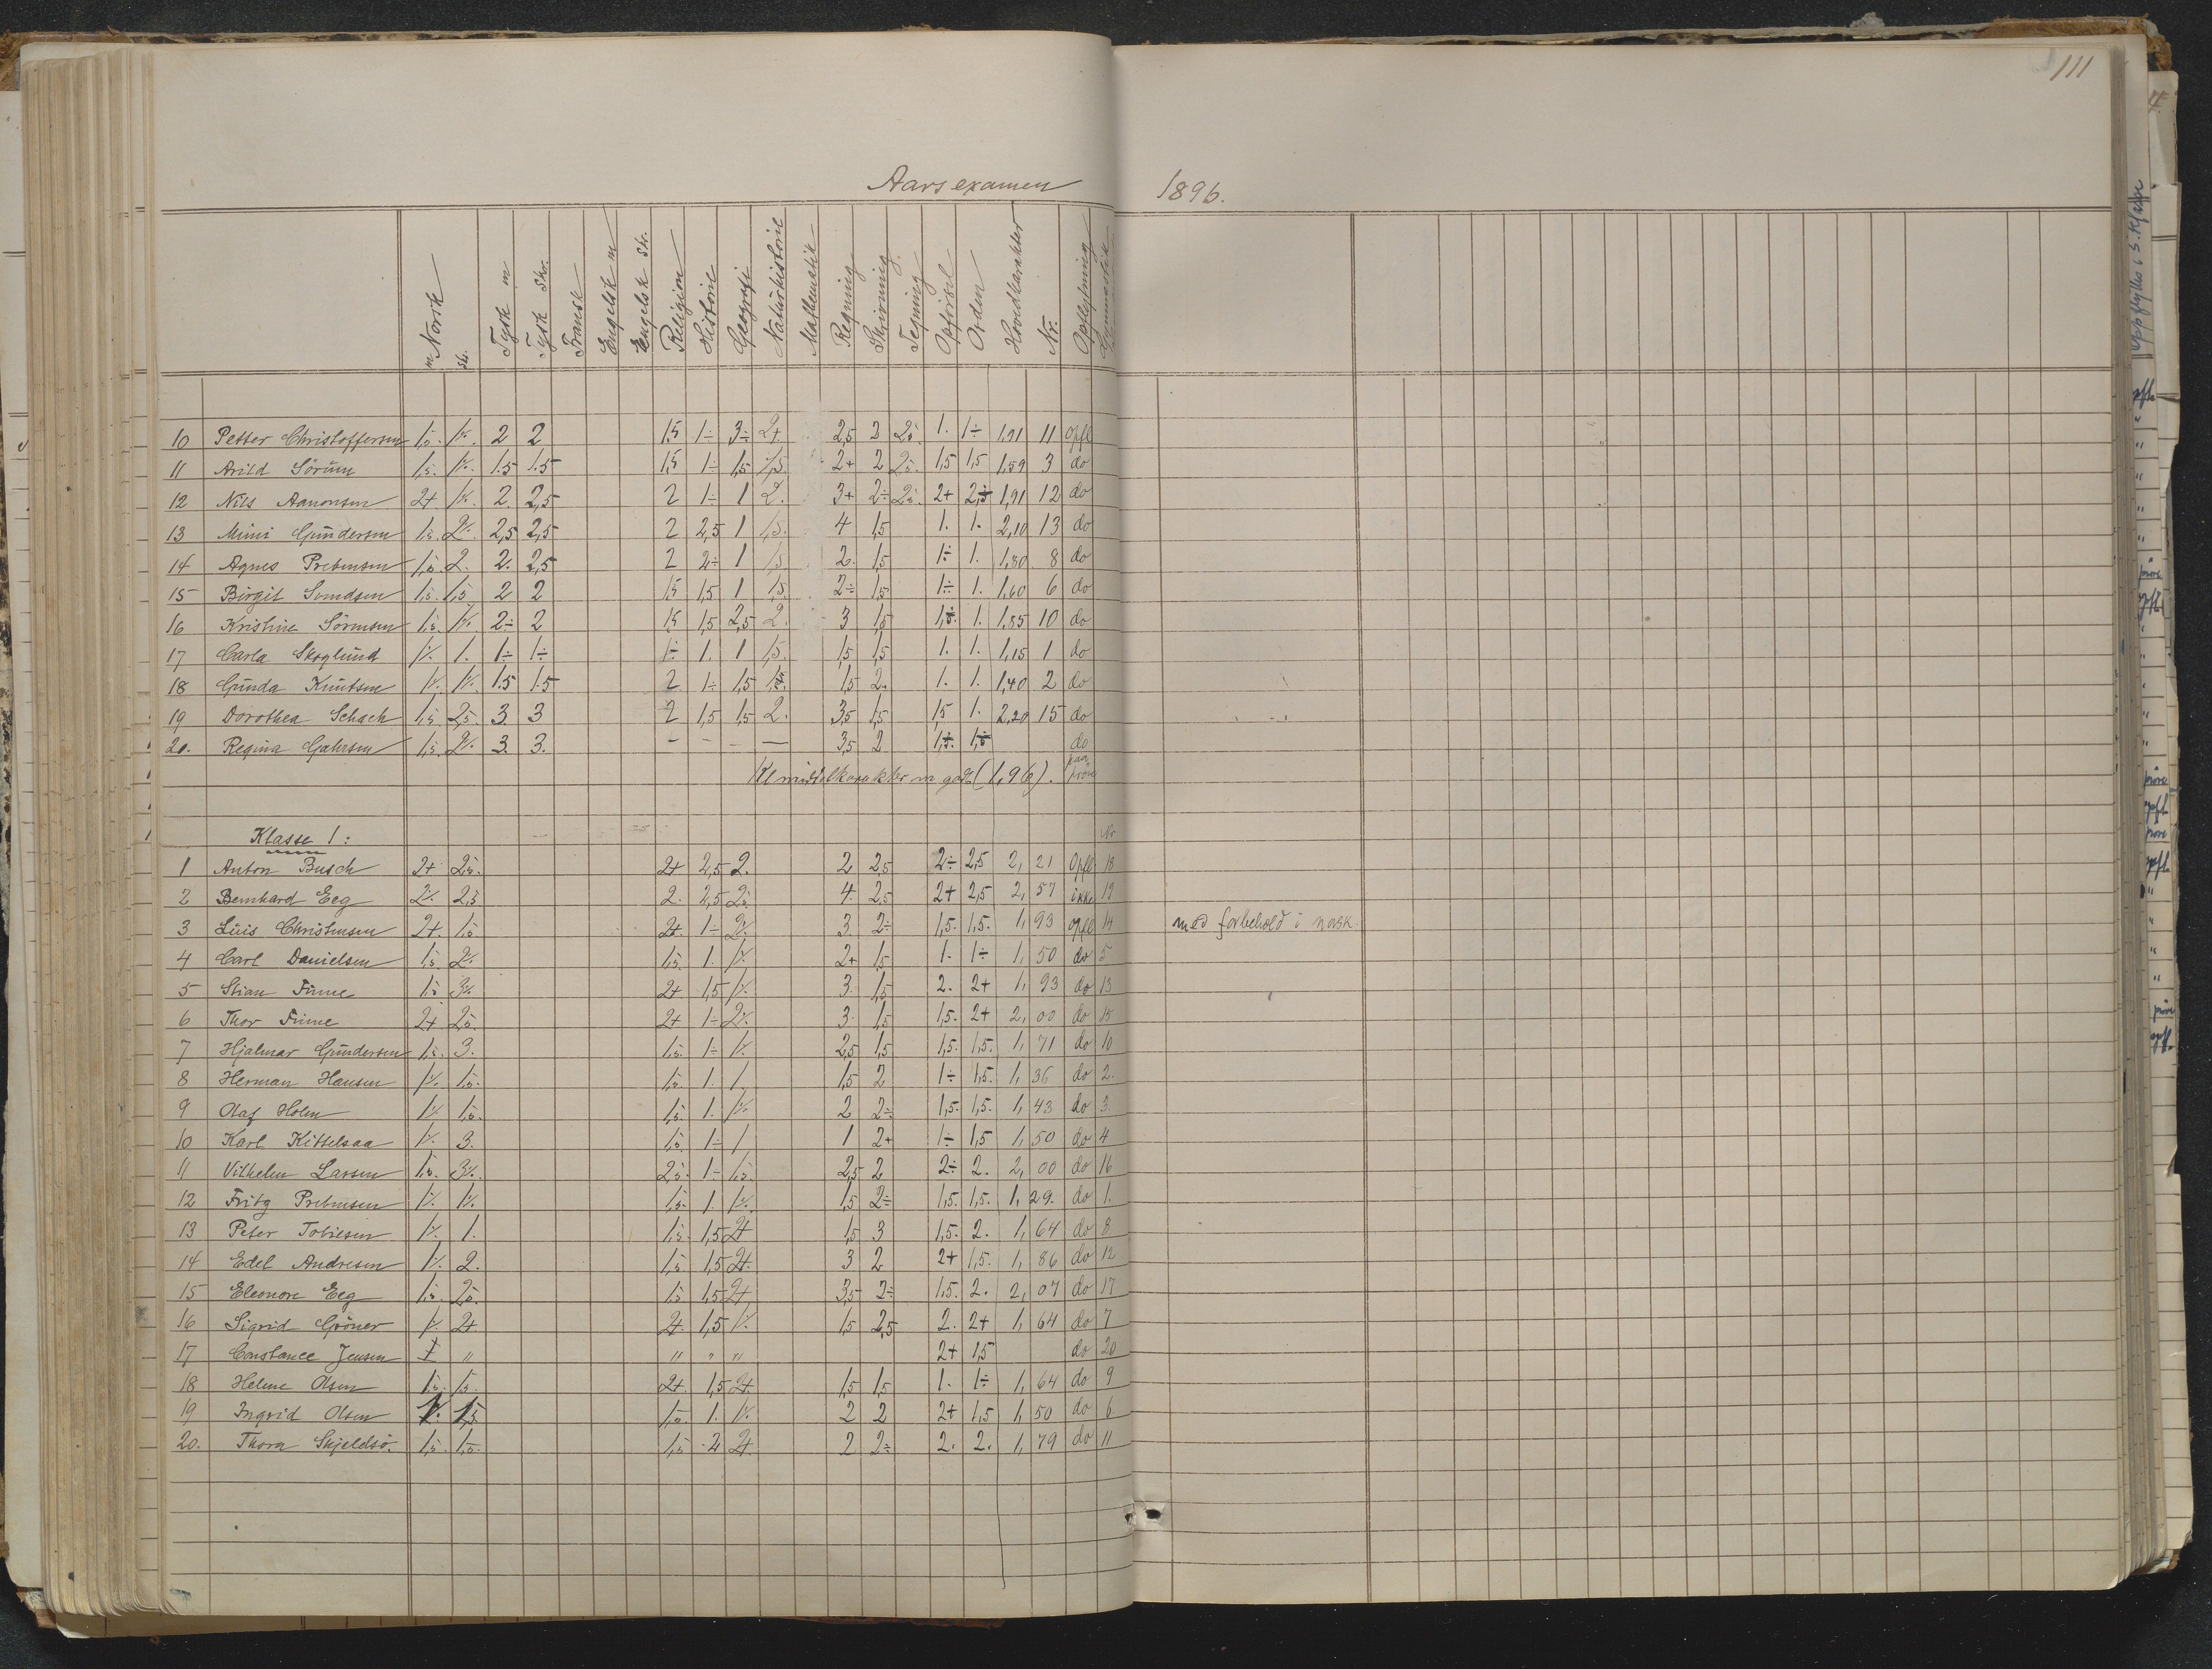 111
Aarsexamen 1896.
Norsk m sk. Tysk m Tysk Skr. Fransk Engelsk m Engelsk Skr. Religion Historie Geografi Naturhistorie Mathematik Regning Skrivning Tegning Opførsel Orden Hovedkarakter Nr. Opflytning Gymnastik
10 Petter Christoffersen 1,5. 1÷. 2 2 1,5 1÷ 3÷ 2+ 2,5 2 2,5. 1. 1÷ 1,91 11 opfl
11 Arild Sörum 1,5. 1÷. 1.5 1.5 1,5 1÷ 1,5 1,5. 2+ 2 2,5. 1,5 1,5 1,59 3 do
12 Nils Aanonsen 2+. 1÷. 2. 2,5 2 1÷ 1 2. 3+ 2÷ 2,5. 2+ 1,91 12 do
13 Mimi Gundersen 1,5. 2÷. 2,5 2,5 2 2,5 1 1,5. 4 1,5 1. 1. 2,10 13 do
14 Agnes Prebensen 1,5. 2. 2. 2,5 2 2÷ 1 1,5 2. 1,5 1÷ 1. 1,80 8 do
15 Birgit Svendsen 1,5. 1,5 2 2 1,5 1,5 1 1,5. 2÷ 1,5 1÷ 1. 1,60 6 do
16 Kristine Sörensen 1,5. 1÷. 2÷ 2 1,5 1,5 2,5 2. 3 1,5 1. 1,85 10 do
17 Carla Skoglund 1÷. 1. 1÷ 1÷ 1÷ 1. 1 1,5. 1,5 1,5 1. 1. 1,15 1 do
18 Gunda Knutsen 1÷. 1÷. 1.5 1.5 2 1÷ 1,5 1,5. 1,5 2. 1. 1. 1,40 2 do
19 Dorothea Schach 1,5 2,5. 3. 3 2 1,5 1,5 2. 3,5 1,5 1,5 1. 2,20 15 do
20. Regina Gahrsen 1,5. 2÷. 3. 3. – – – — 3,5 2 do
Kl middelkarakter m godt (1,96).
Klasse 1: Nr
1 Anton Busch 2+ 2,5. 2+ 2,5 2. 2 2,5 2÷ 2,5 2,21 Opfl 18
2 Bernhard Eeg 2÷. 2,5 2. 2,5 2,5 4. 2,5 2+ 2,5 2,57 ikke 19
3 Luis Christensen 2+. 1,5 2+. 1÷ 2÷. 3. 2÷ 1,5. 1,5. 1,93 opfl 14 med forbehold i norsk.
4 Carl Danielsen 1,5. 2÷. 1,5. 1. 1÷. 2+ 1,5 1. 1÷ 1,50 do 5
5 Stian Finne 1,5 3÷. 2+ 1,5 1÷. 3. 1,5 2. 2+ 1,93 do 13
6 Thor Finne 2+ 2,5. 2+ 1÷ 2÷. 3. 1,5 1,5. 2+ 2,00 do 15
7 Hjalmar Gundersen 1,5. 3. 1,5. 1÷ 1÷. 2,5 1,5 1,5. 1,5. 1,71 do 10
8 Herman Hansen 1÷. 1,5. 1,5. 1. 1. 1,5 2 1÷ 1,5. 1,36 do 2.
9 Olaf Holm 1÷. 1,5. 1,5. 1. 1÷. 2 2÷ 1,5. 1,5. 1,43 do 3.
10 Karl Kittelsaa 1÷. 3. 1,5. 1÷ 1 1 2+ 1÷ 1,5 1,50 do 4
11 Vilhelm Larsen 1,5. 3÷. 2,5. 1÷ 1,5. 2,5 2 2÷ 2. 2,00 do 16
12 Fritz Prebensen 1÷. 1÷. 1,5. 1. 1÷. 1,5 2÷ 1,5. 1,5. 1,29. do 1.
13 Peter Tobiesen 1÷. 1. 1,5. 1,5 2+ 1,5 3 1,5. 2. 1,64 do 8
14 Edel Andresen 1÷. 2. 1,5 1,5 2+. 3 2 2+ 1,5. 1,86 do 12
15 Eleonore Eeg 1,5. 2,5. 1,5 1,5 2+ 3,5 2÷ 1,5. 2. 2,07 do 17
16 Sigrid Gröner 1÷. 2+ 2+. 1,5 1÷. 1,5 2,5 2. 2+ 1,64 do 7
17 Constance Jensen " " " " 2+ 1,5 do 20
18 Helene Olsen 1,5. 1,5. 2+. 1,5 2+. 1,5 1,5 1. 1÷ 1,64 do 9
19 Ingrid Olsen 1÷. 1,5 1,5. 1. 1÷. 2 2 2+ 1,5 1,50 do 6
20. Thora Skjeldsö. 1,5. 1,5. 1,5 2 2+. 2 2÷ 2. 2. 1,79 do 11